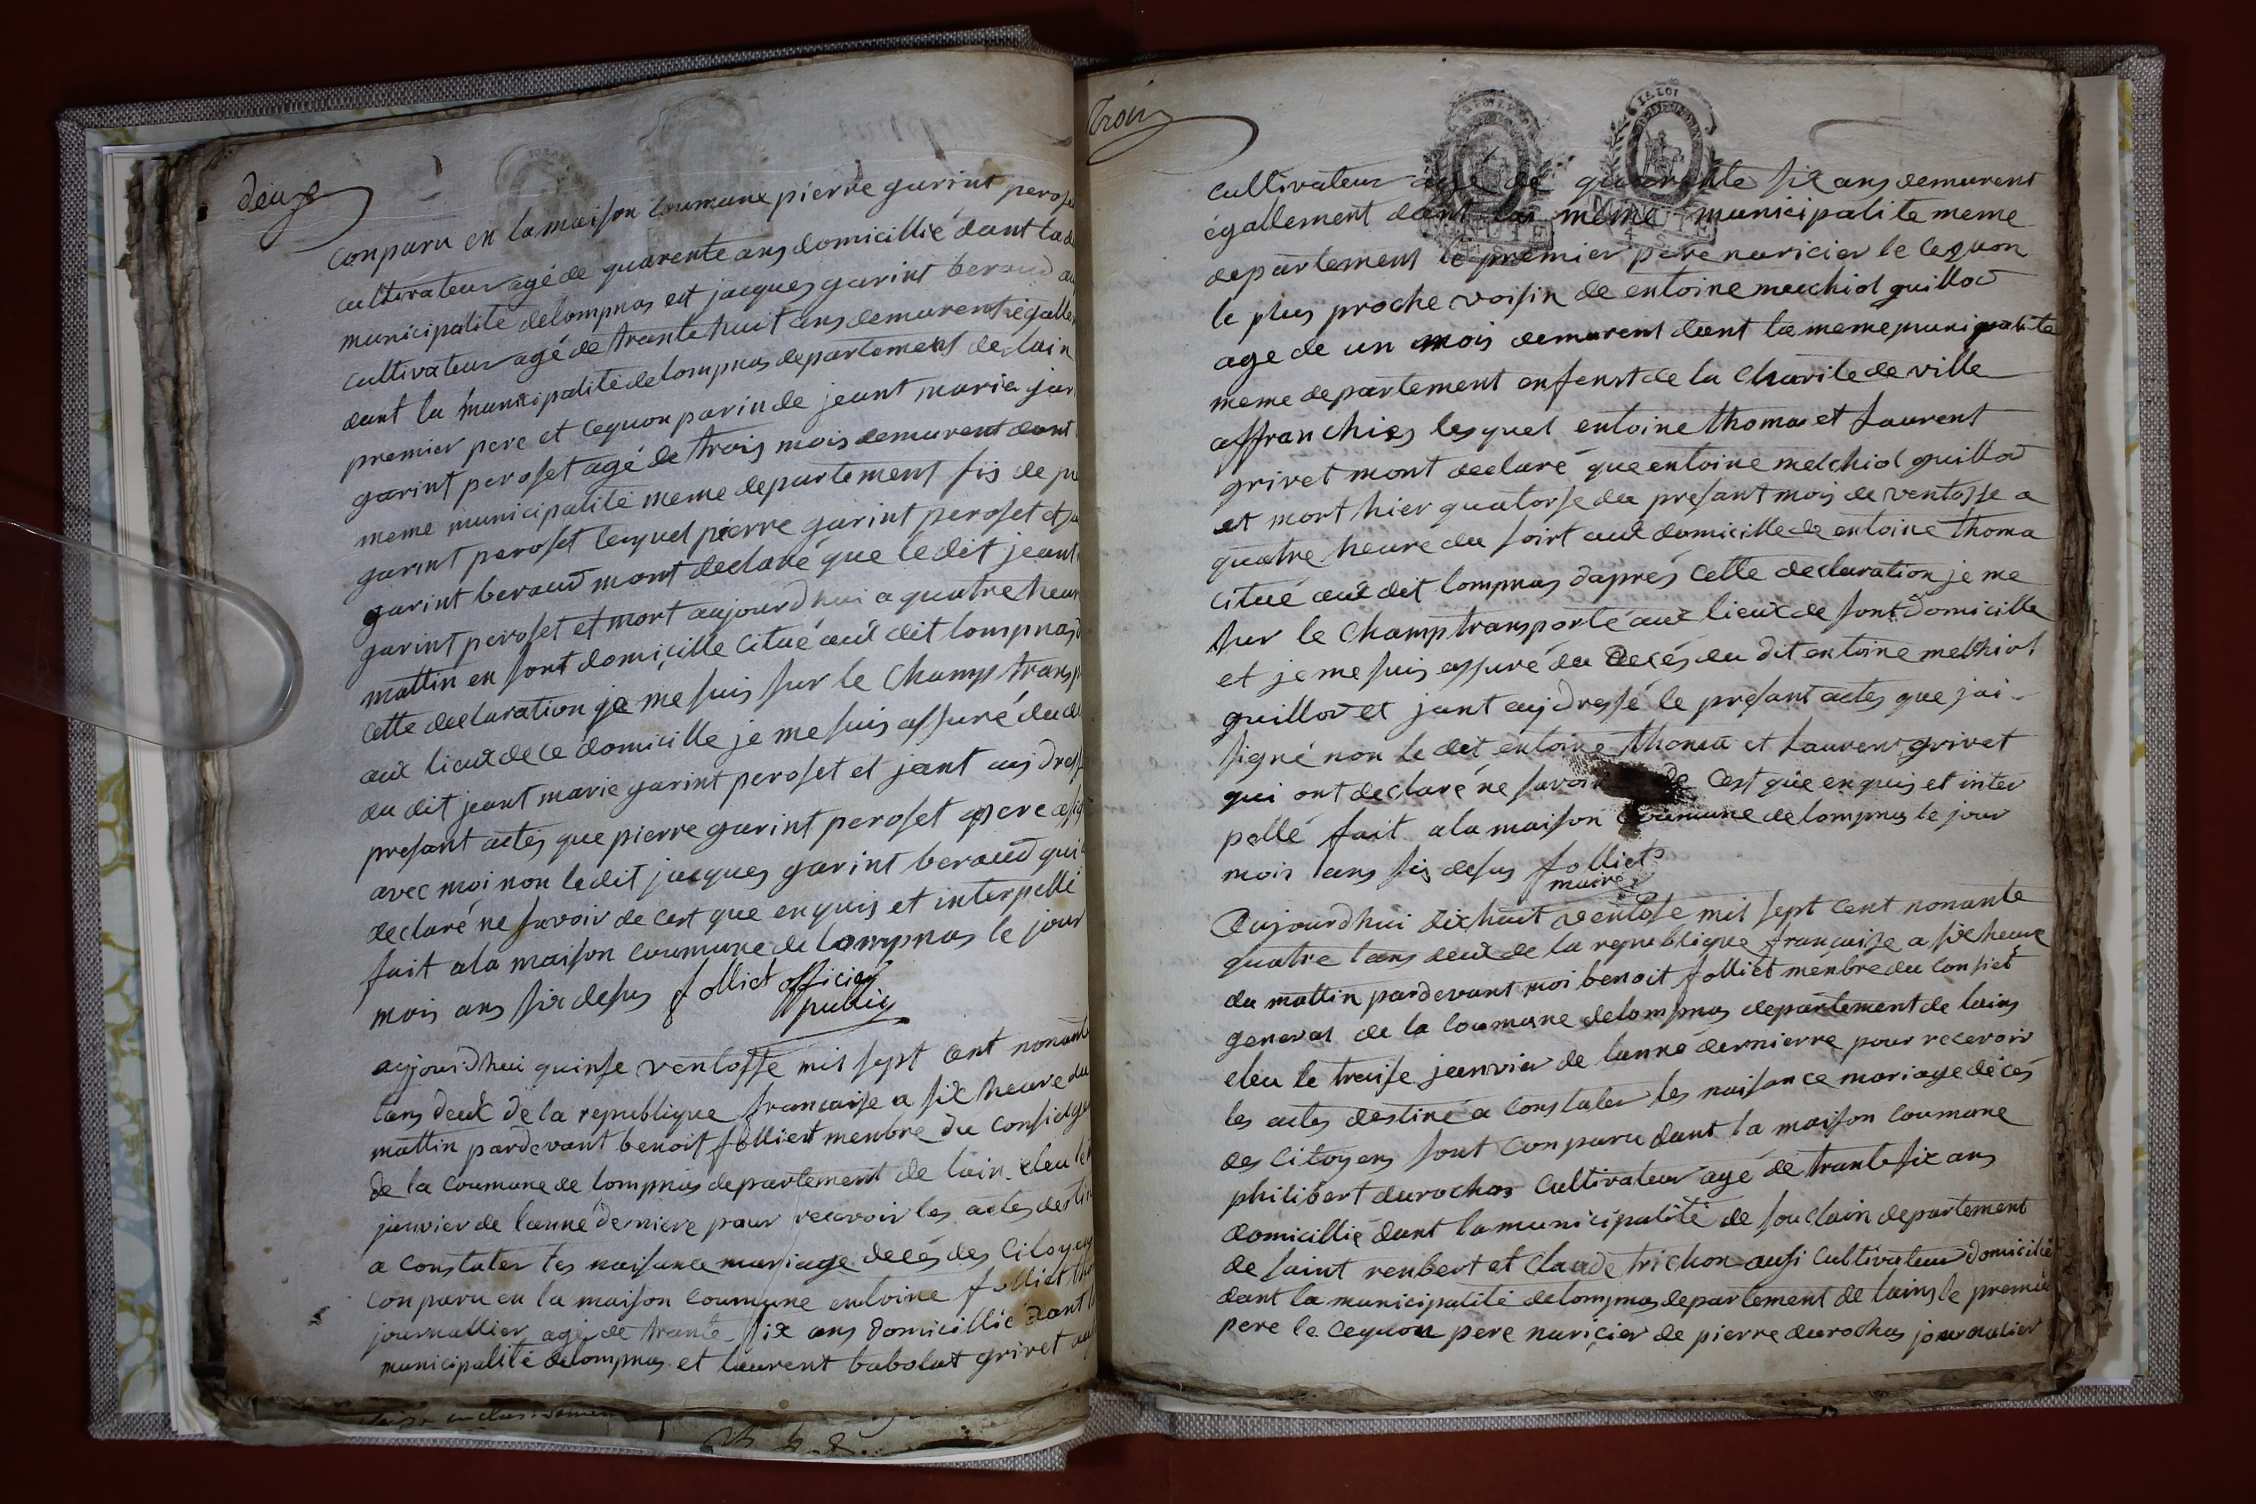 deux
conparu en la maison coumune pierre garint peroset
cultivateur agé de quarente ans domicillié dant la
municipalite delompnas et jacques garint beraud
cultivateur agé de trante huit ans demurent égalle
dant la municipalité de lompnas departement de lain
premier pere et cequon parin de jeant marie gar
garint peroset agé de trois mois demurent dant
meme municipalité meme departement fis de
garint peroset lequel pierre garint peroset et
garint beraud mont declaré que le dit jeant
garint peroset et mort aujourdhui a quatre heur
mattin en sont domicille citué aux dit lompnas
cette declaration je me suis sur le champ transp
aux lieux de ce domicille je me suis assuré du
du dit jeant marie garint peroset et jant aij dress
presant actes que pierre garint peroset pere
avec moi non ledit jacques garint beraud qui
declaré ne savoir de cest que enquis et interpellé
fait ala maison coumune de lompnas le jour
mois ans six desus folliet officier
public
aujourdhui quinse ventosse mil sept cent nonant
lans deux de la republique francaise a six heure du
mattin pardevant benoit folliet menbre du consiel ge
de la coumune de lompnas departement de lain eleu le
janvier de lanné derniere pour recevoir les actes destin
a constater les naisance mariage decés des citoyens
conparu en la maison coumune entoine folliet tho
journallier agé de trante six ans domicillié dant
municipalité delompnas et laurent babolat grivet
trois
LA LOI
MINUTE
4 S.
cultivateur agé de quarente six ans demurent
égallement dant la meme municipalite meme
departement le premier pere naricier le cequon
le plus proche voisin de entoine mecchiol guillod
age de un mois demurent dant la meme municipalite
meme departement enfenst de la charite de ville
affranchies lesquel entoine thoma et laurent
grivet mont declaré que entoine melchiol guillod
et mort hier quatorse du presant mois de ventosse a
quatre heure du soirt aux domicille de entoine thoma
citué aux dit lompnas daprés cette declaration je me
sur le champ transporté aux lieux de sont domicille
et je me suis assuré du decés du dit entoine melchiol
guillod et jant aij dressé le presant actes que jai
signé non le dit entoine thoma et laurent grivet
qui ont declaré ne savoir de cest que enquis et inter
pellé fait ala maison coumune de lompnas le jour
mois lans six desus folliet
maire
Aujourdhui dix huit ventose mil sept cent nonante
quatre lans deux de la republique francaise a six heure
du mattin pardevant moi benoit folliet menbre du consiel
general de la coumune delompnas departement de lains
eleu le traise jeanvier de lanné dernierre pour recevoir
les actes destiné a constater les naisance mariage décés
des citoyens sont conparu dant la maison coumune
philibert durochas cultivateur agé de trante six ans
domicillié dant la municipalité de souclain departement
de saint renbert et claude trichon ausi cultivateur domicilié
dant la municipalité delompnas departement de lains le premier
pere le cequon pere nuricier de pierre durochas journalier